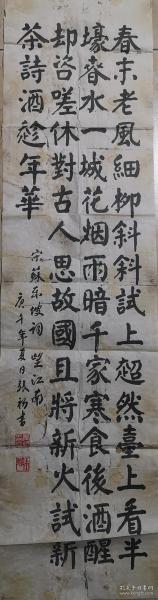 春未老風細柳斜斜試上超然臺上看半
壕春水一城花烟雨暗千家寒食後酒醒
却咨嗟休對古人思故國且將新火試新
茶詩酒趁年華
宋蘇東坡詞望江南
庚午年夏日